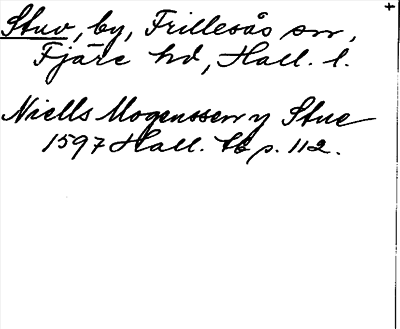 Stuv, by, Frillesås sn,
Fjäre hd, Hall. l.
Niells Mogenssen y Stue
1597 Hall. tb p. 112.